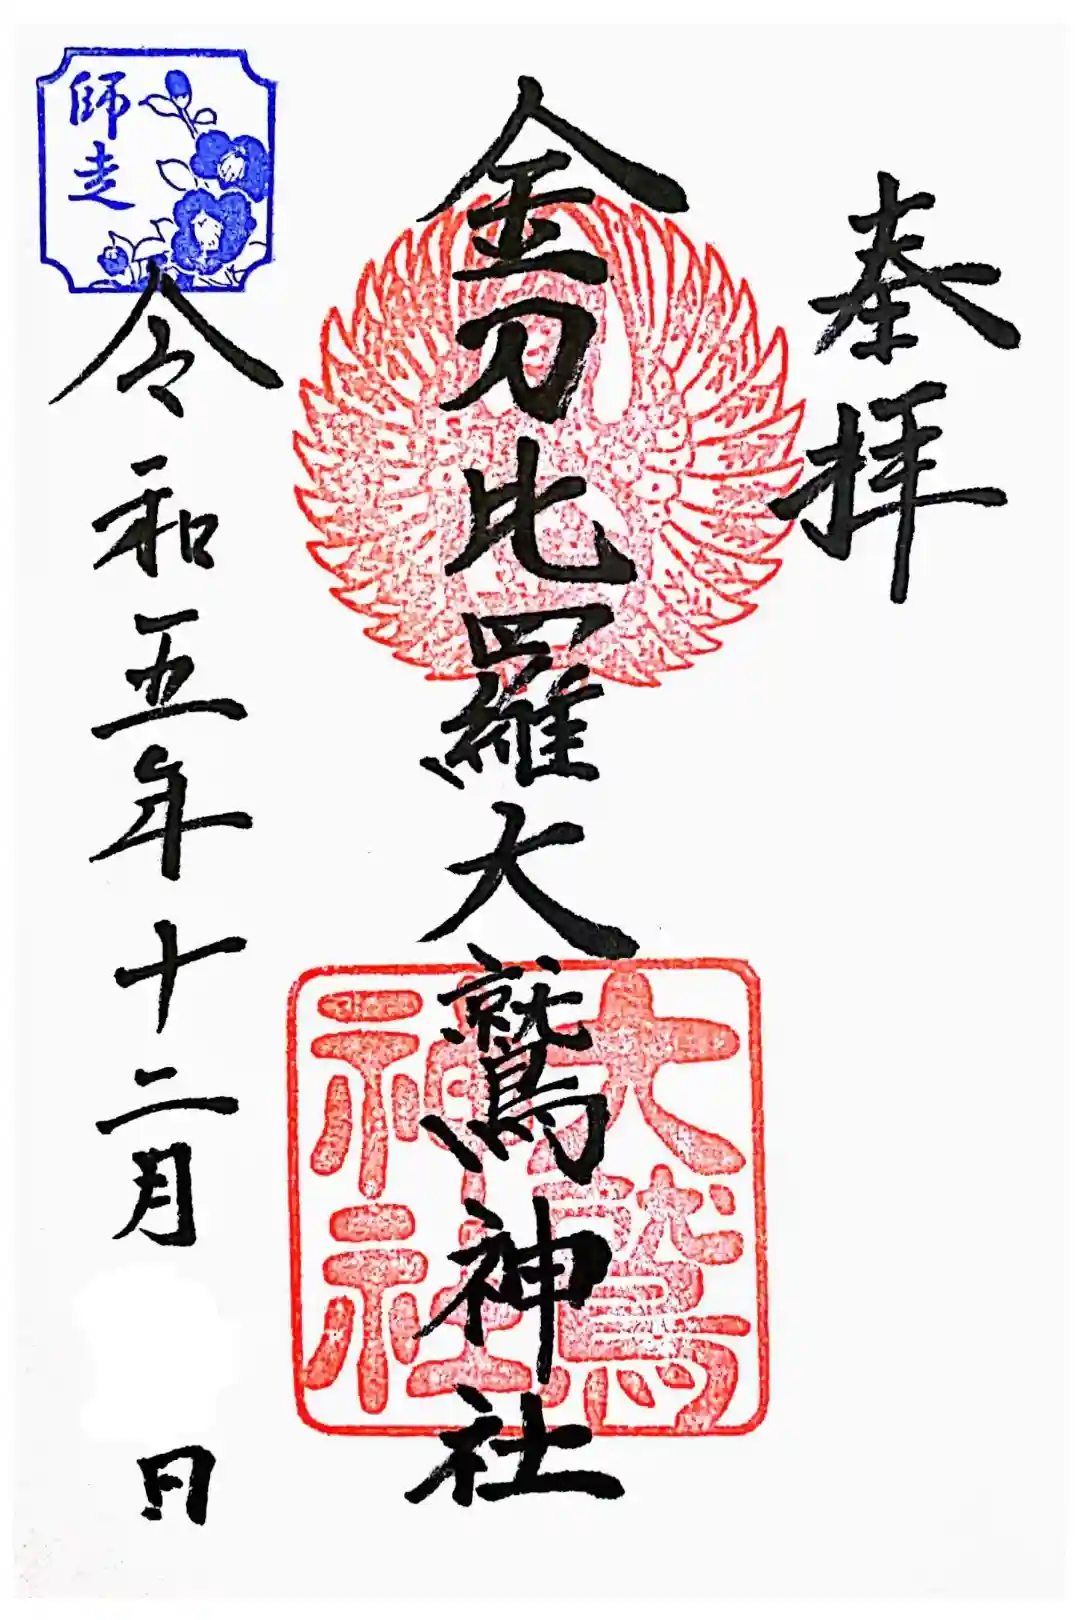 奉拝
金刀比羅大鷲神社
大鷲
神社
師走
令和五年十二月 日